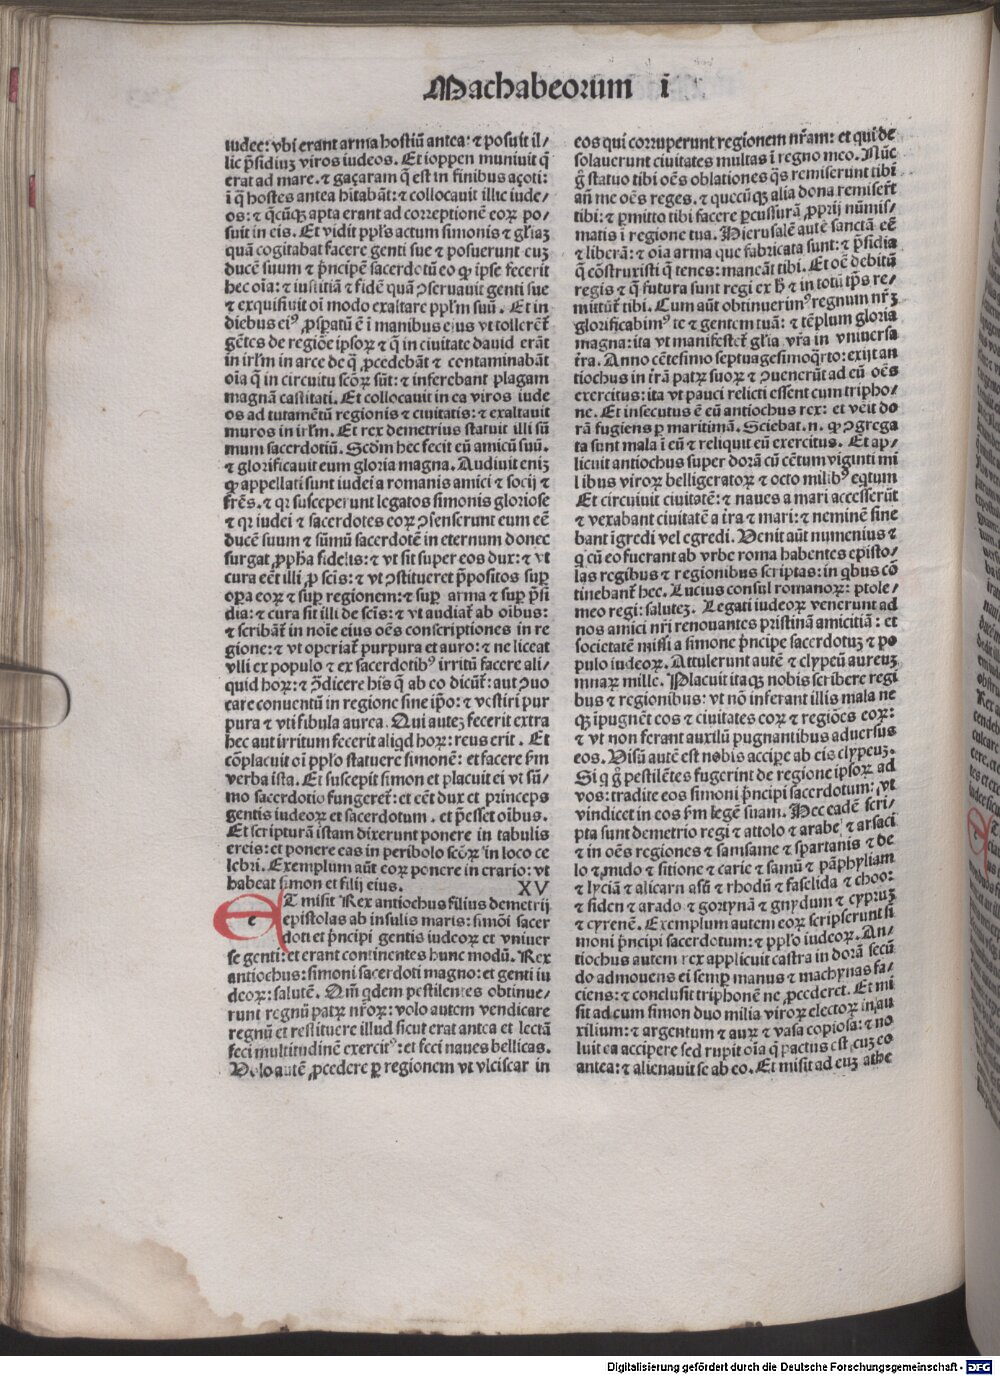 Machabeorum i
iudee: vbi erant arma hostiū antea: ⁊ posuit il/
lic p̄sidiuʒ viros iudeos. Et ioppen muniuit q̄
erat ad mare. ⁊ gaçaram q̄ est in finibus açoti:
ī q̄ hostes antea hītabāt: ⁊ collocauit illic iude/
os: ⁊ q̄cūqʒ apta erant ad correptionē eoꝝ po/
suit in eis. Et vidit ppl̓s actum simonis ⁊ gl̓iaʒ
quā cogitabat facere genti sue ⁊ posuerunt euʒ
ducē suum ⁊ p̄ncipē sacerdotū eo ꝙ ip̄e fecerit
hec oīa: ⁊ iustitiā ⁊ fidē quā ꝯseruauit genti sue
⁊ exquisiuit oī modo exaltare ppl̓m suū. Et in
diebus eiꝰ ꝓsp̱atū ē ī manibus eius vt tollerēt̄
gētes de regiōe ipsoꝝ ⁊ q̄ in ciuitate dauid erāt
in irl̓m in arce de q̄ ꝓcedebāt ⁊ contaminabāt
oīa q̄ in circuitu scōꝝ sūt: ⁊ inferebant plagam
magnā castitati. Et collocauit in ea viros iude
os ad tutamētū regionis ⁊ ciuitatis: ⁊ exaltauit
muros in irl̓m. Et rex demetrius statuit illi sū
mum sacerdotiū. Scd̄m hec fecit eū amicū suū.
⁊ glorificauit eum gloria magna. Audiuit eniʒ
ꝙ appellati sunt iudei a romanis amici ⁊ socij ⁊
frēs. ⁊ qꝛ susceperunt legatos simonis gloriose
⁊ qꝛ iudei ⁊ sacerdotes eoꝝ ꝯsenserunt eum eē
ducē suum ⁊ sūmū sacerdotē in eternum donec
surgat ꝓph̄a fidelis: ⁊ vt sit super eos dux: ⁊ vt
cura eēt illi ꝓ scīs: ⁊ vt ꝯstitueret p̄positos suꝑ
oꝑa eoꝝ ⁊ suꝑ regionem: ⁊ suꝑ arma ⁊ suꝑ p̄si
dia: ⁊ cura sit illi de scīs: ⁊ vt audiat̄ ab oībus:
⁊ scribāt̄ in noīe eius oēs conscriptiones in re
gione: ⁊ vt operiat̄ purpura et auro: ⁊ ne liceat
vlli ex populo ⁊ ex sacerdotibꝰ irritū facere ali/
quid hoꝝ: ⁊ ꝯ̄dicere his q̄ ab eo dicūt̄: aut ꝯuo
care conuentū in regione sine ip̄o: ⁊ vestiri pur
pura ⁊ vti fibula aurea. Qui auteʒ fecerit extra
hec aut irritum fecerit aliqd hoꝝ: reus erit. Et
cōplacuit oī ppl̓o statuere simonē: et facere ẜm
verba ista. Et suscepit simon et placuit ei vt sū/
mo sacerdotio fungeret̄: et eēt dux et princeps
gentis iudeoꝝ et sacerdotum. et p̄esset oībus.
Et scripturā istam dixerunt ponere in tabulis
ereis: et ponere eas in peribolo scōꝝ in loco ce
lebri. Exemplum aūt eoꝝ ponere in erario: vt
habeat simon et filij eius. XV
ET misit Rex antiochus filius demetrij
epistolas ab insulis maris: simōi sacer
doti et p̄ncipi gentis iudeoꝝ et vniuer
se genti: et erant continentes hunc modū. Rex
antiochus: simoni sacerdoti magno: et genti iu
deoꝝ: salutē. Qm̄ qdem pestilentes obtinue/
runt regnū patꝝ nr̄oꝝ: volo autem vendicare
regnū et restituere illud sicut erat antea et lectā
feci multitudinē exercitꝰ: et feci naues bellicas.
Volo autē ꝓcedere ꝑ regionem vt vlciscar in
eos qui corruperunt regionem nr̄am: et qui de
solauerunt ciuitates multas ī regno meo. Nūc
g̊ statuo tibi oēs oblationes q̄s remiserunt tibi
añ me oēs reges. ⁊ quecūqʒ alia dona remiserūt
tibi: ⁊ ꝑmitto tibi facere ꝑcussurā ꝓprij nūmis/
matis ī regione tua. Hierusalē autē sanctā eē
⁊ liberā: ⁊ oīa arma que fabricata sunt: ⁊ p̄sidia
q̄ cōstruxisti q̄ tenes: maneāt tibi. Et oē debitū
regis ⁊ q̄ futura sunt regi ex h̄ ⁊ in totū tp̄s re/
mittūt̄ tibi. Cum aūt obtinuerimꝰ regnum nr̄ʒ
glorificabimꝰ te ⁊ gentem tuā: ⁊ tēplum gloria
magna: ita vt manifestet̄ gl̓ia vr̄a in vniuersa
t̄ra. Anno cētesimo septuagesimoq̊rto: exijt an
tiochus in t̄rā patꝝ suoꝝ ⁊ ꝯuenerūt ad eū oēs
exercitus: ita vt pauci relicti essent cum tripho/
ne. Et insecutus ē eū antiochus rex: et veīt do
rā fugiens ꝑ maritimā. Sciebat.n. ꝙ ꝯgrega
ta sunt mala ī eū ⁊ reliquit eū exercitus. Et ap/
licuit antiochus super dorā cū cētum viginti mi
libus viroꝝ belligeratoꝝ ⁊ octo milibꝰ eqtum
Et circuiuit ciuitatē: ⁊ naues a mari accesserūt
⁊ vexabant ciuitatē a t̄ra ⁊ mari: ⁊ neminē sine
bant īgredi vel egredi. Venit aūt numenius ⁊
q̄ cū eo fuerant ab vrbe roma habentes episto/
las regibus ⁊ regionibus scriptas: in qbus cō
tinebant̄ hec. Lucius consul romanoꝝ: ptole/
meo regi: saluteʒ. Legati iudeoꝝ venerunt ad
nos amici nr̄i renouantes pristinā amicitiā: et
societatē missi a simone p̄ncipe sacerdotuʒ ⁊ po
pulo iudeoꝝ. Attulerunt autē ⁊ clypeū aureuʒ
mnaꝝ mille. Placuit itaqʒ nobis scribere regi
bus ⁊ regionibus: vt nō inferant illis mala ne
qʒ īpugnēt eos ⁊ ciuitates eoꝝ ⁊ regiōes eoꝝ:
⁊ vt non ferant auxiliū pugnantibus aduersus
eos. Visū autē est nobis accipe ab eis clypeuʒ.
Si q̄ g̊ pestilētes fugerint de regione ipsoꝝ ad
vos: tradite eos simoni p̄ncipi sacerdotum: vt
vindicet in eos ẜm legē suam. Hec eadē scri/
pta sunt demetrio regi ⁊ attolo ⁊ arabe ⁊ arsaci
⁊ in oēs regiones ⁊ samsame ⁊ spartanis ⁊ de
lo ⁊ mido ⁊ sitione ⁊ carie ⁊ samū ⁊ pāphyliam
⁊ lyciā ⁊ alicarn asū ⁊ rhodū ⁊ faselida ⁊ choo:
⁊ siden ⁊ arado ⁊ gortynā ⁊ gnydum ⁊ cypruʒ
⁊ cyrenē. Exemplum autem eoꝝ scripserunt si
moni p̄ncipi sacerdotum: ⁊ ppl̓o iudeoꝝ. An/
tiochus autem rex applicuit castra in dorā secū
do admouens ei semꝑ manus ⁊ machynas fa/
ciens: ⁊ conclusit triphonē ne ꝓcederet. Et mi
sit ad eum simon duo milia viroꝝ electoꝝ in au
xilium: ⁊ argentum ⁊ auꝝ ⁊ vasa copiosa: ⁊ no
luit ea accipere sed rupit oīa q̄ pactus est cuʒ eo
antea: ⁊ alienauit se ab eo. Et misit ad euʒ athe
Digitalisierung gefördert durch die Deutsche Forschungsgemeinschaft - DFG